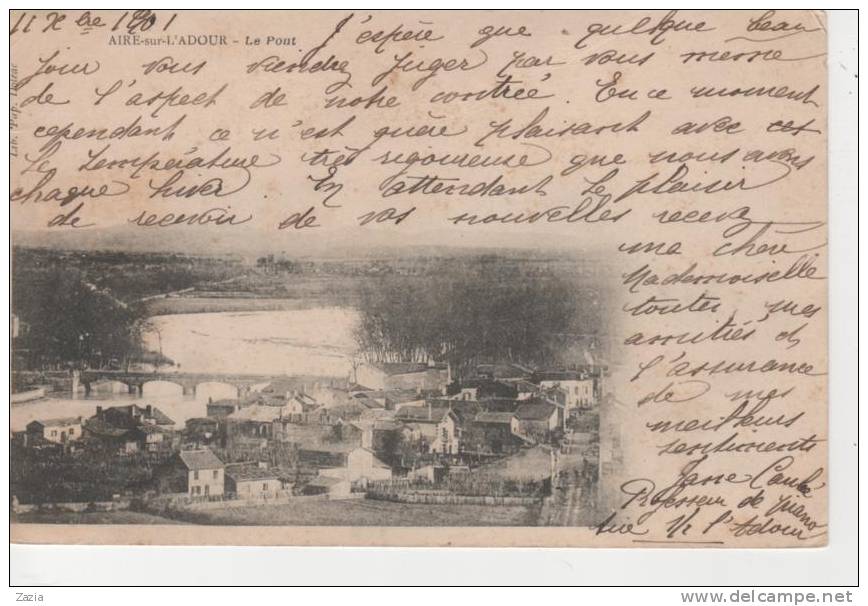 11 Xbre 1901
AIRE-sur-L'ADOUR - Le Pont
J'espère que quelque beau
jour vous viendrez juger par vous même
de l'aspect de notre contrée. En ce moment
cependant ce n'est guère plaisant avec cet
te température très rigoureuse que nous avons
chaque hiver. En attendant le plaisir
de recevoir de vos nouvelles recevez
ma chère
Mademoiselle
toutes mes
amitiés et
l'assurance
de mes
meilleurs
sentiments
Jane
Professeur de piano
Aire s/ l'Adour
Zazia
http://www.delcampe.net